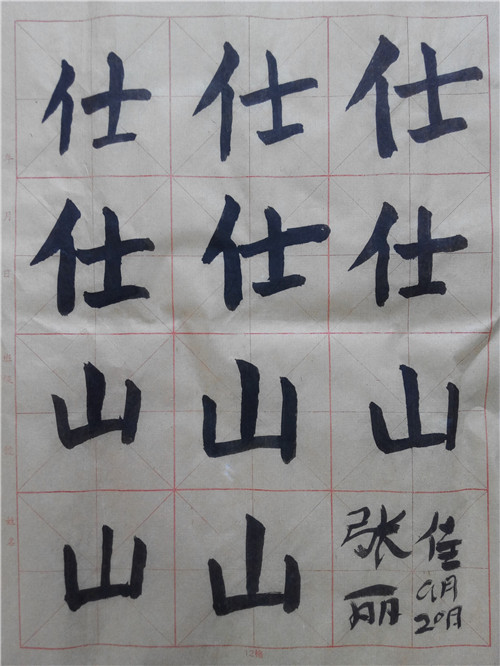 仕仕仕
仕仕仕
山山山
山山
张丽
佳
9月
20月